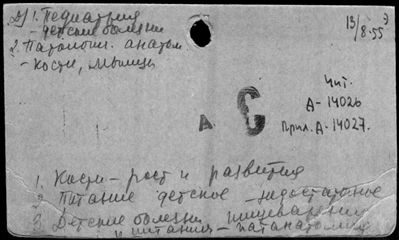 1. Педиатрия
- детские болезни
2. Патологич. анатом
- кости, мышцы
13/8-55 Э
Чит.
А-14026
Прил. А-14027.
А С
1. Кости - рост и развития
2. Питание детское - недостаточное
3. Детские болезни пищеварения
и питания - патанатомия